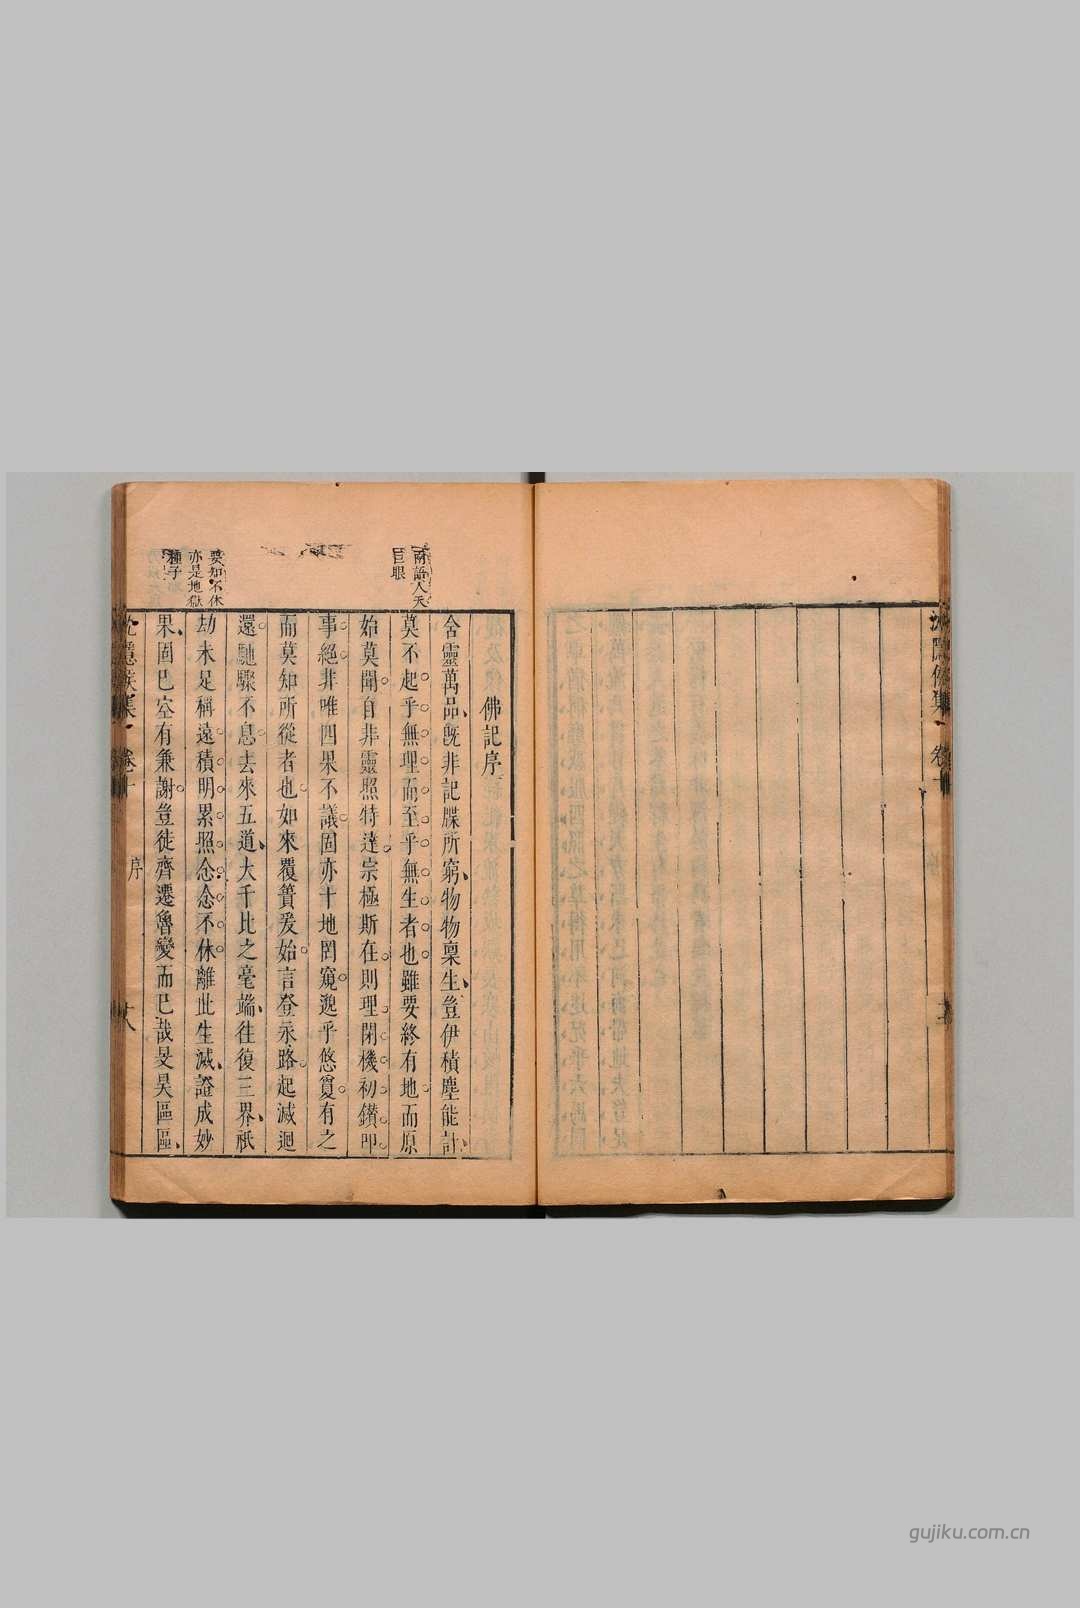 沈隱侯集
卷十
佛記序
含靈萬品既非記牒所窮物物稟生豈伊積塵能計
莫不起乎無理而至乎無生者也雖要終有地而原
始莫聞自非靈照特達宗極斯在則理閉機初鑽卽
事絕非唯四果不議固亦十地罔窺邈乎悠夐有之
而莫知所從者也如來覆簣爰始言登永路起滅迴
還馳驟不息去來五道大千比之毫端往復三界祇
劫未足稱遠積明累照念念不休離此生滅證成妙
果固已空有兼謝豈徒齊遷魯變而已哉旻昊區區
兩語人天
巨眼
要知不休
亦是地獄
種子
沈隱侯集
卷十
序
gujiku.com.cn